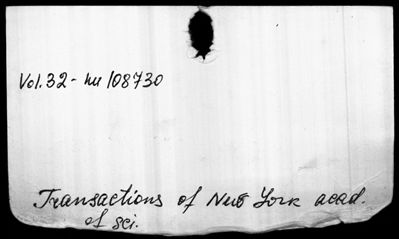 Vol. 32 - нн 108730
Transactions of New York acad.
of sci.